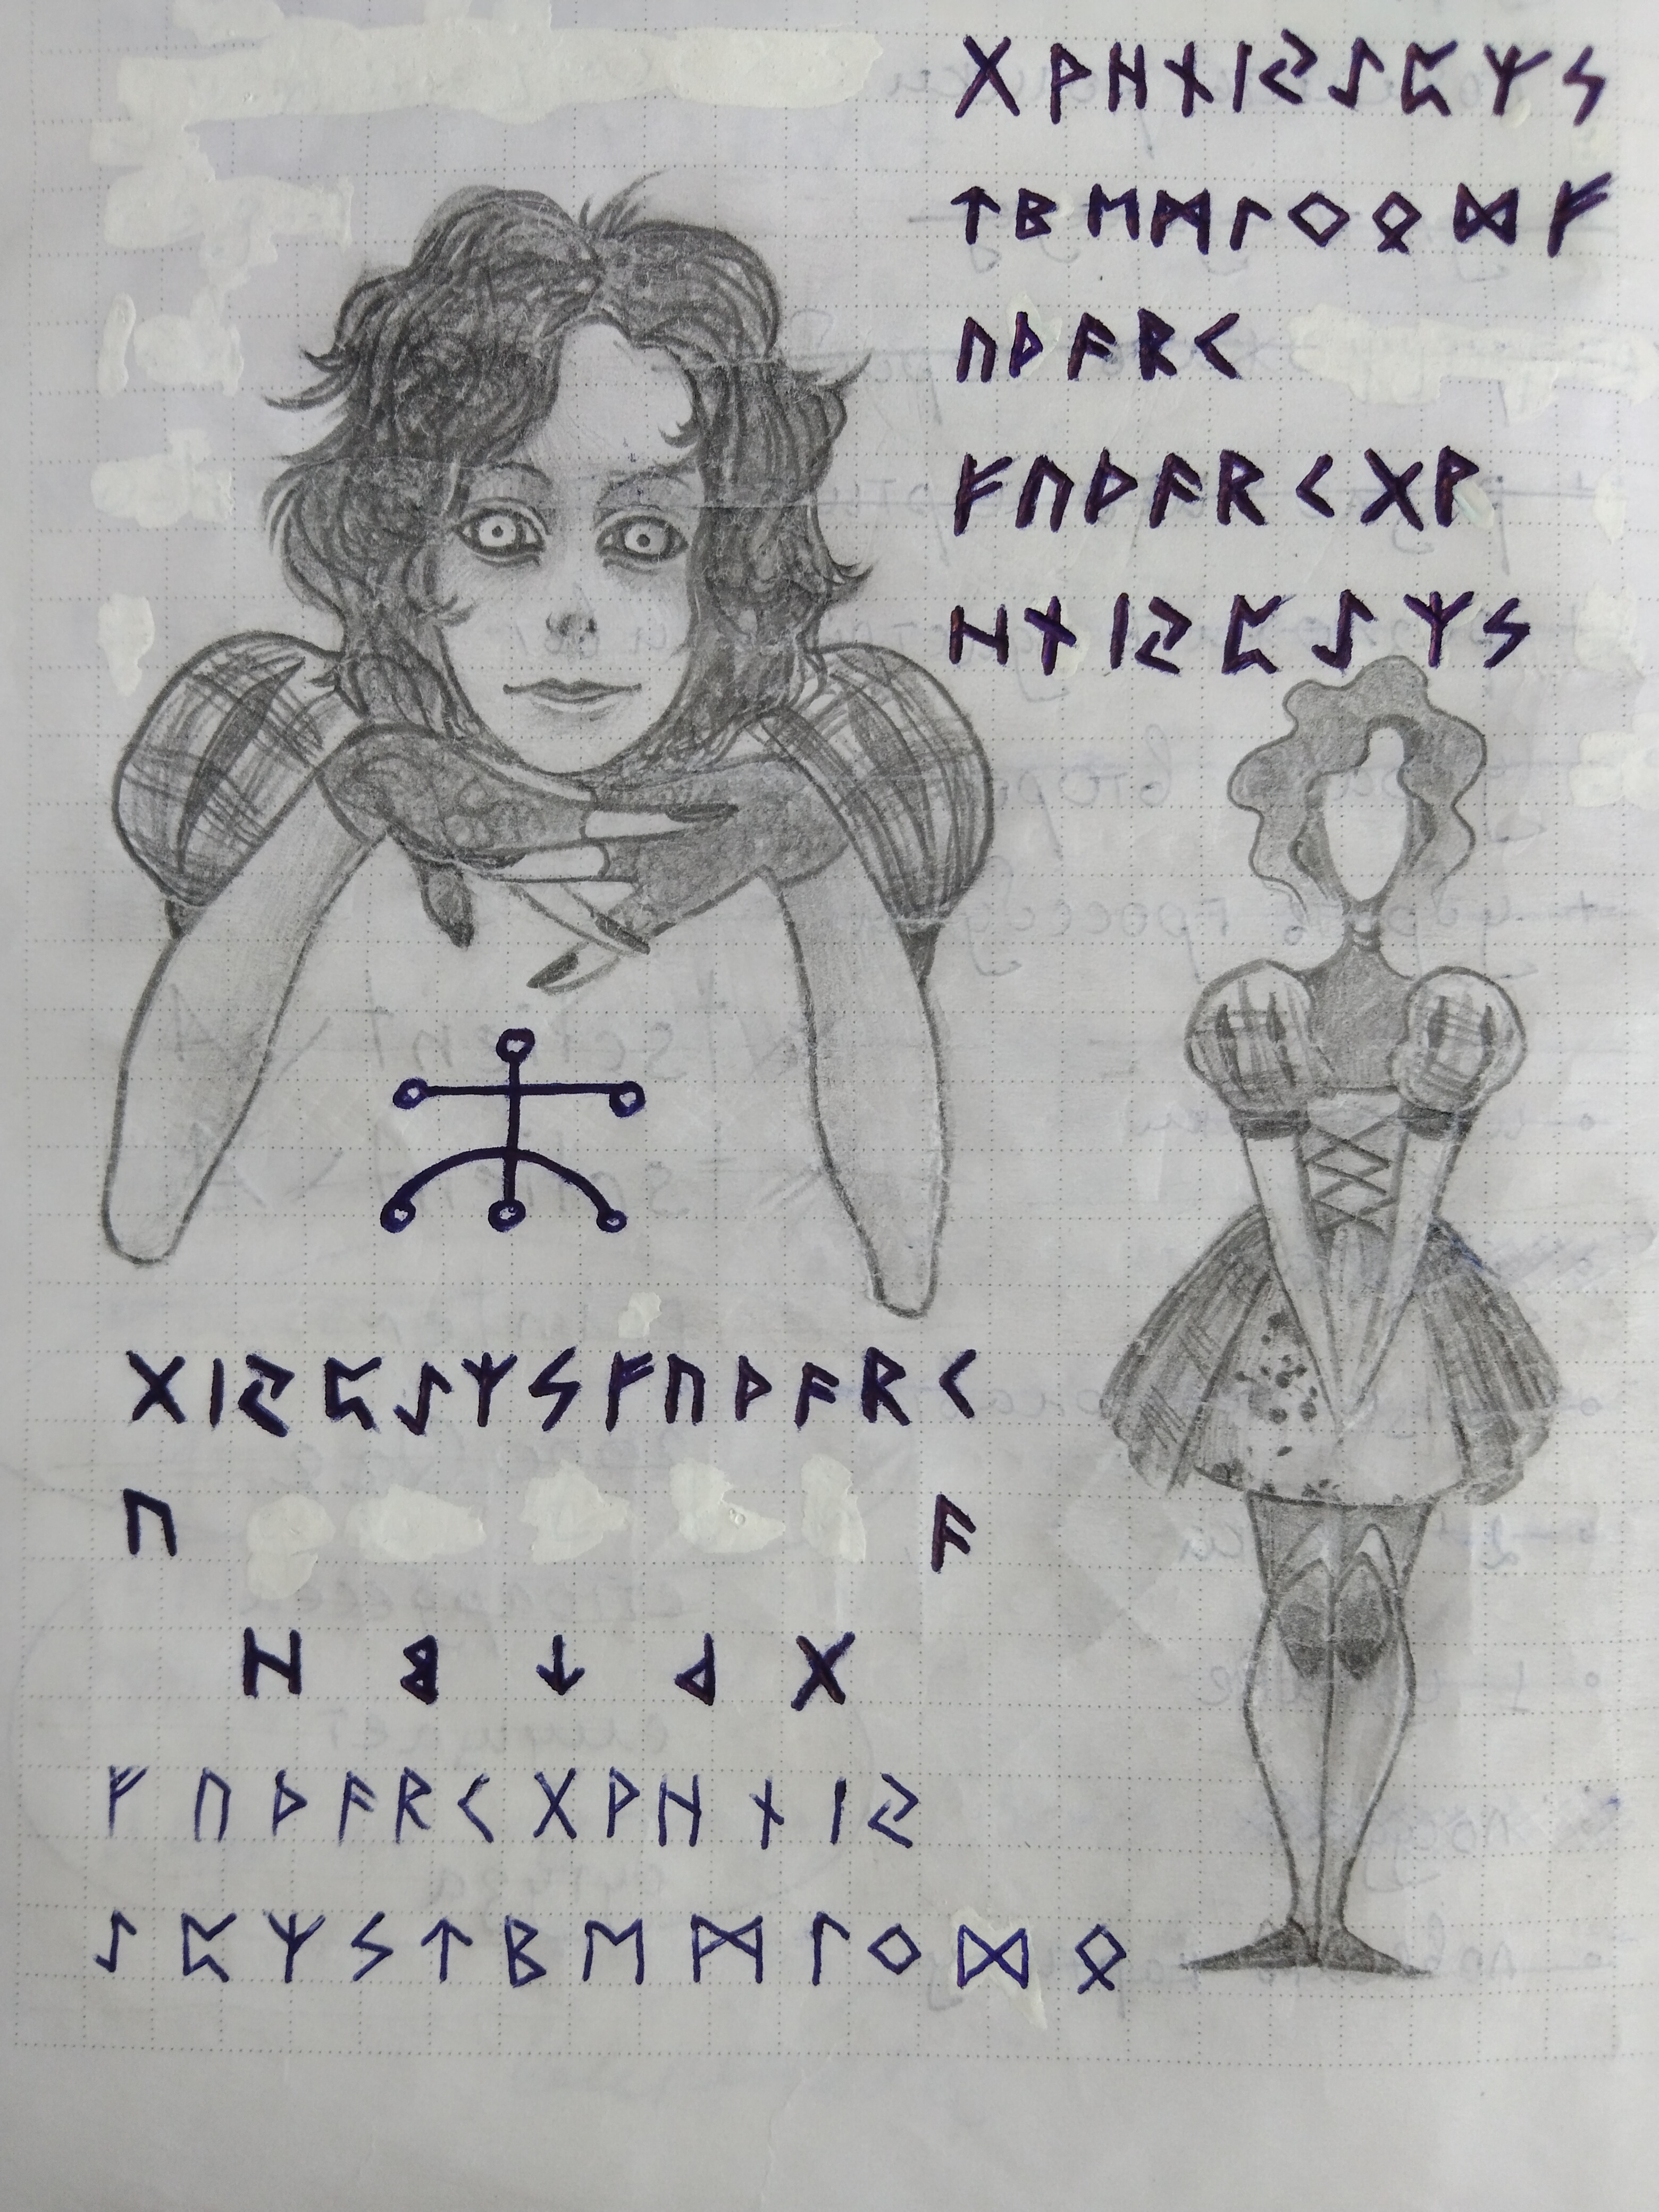 ᚷᚹᚺᚾᛁᛃᛇᛈᛉᛊ
ᛏᛒᛖᛗᛚᛜᛟᛞᚠ
ᚢᚦᚨᚱᚲ
ᚠᚢᚦᚨᚱᚲᚷᚹ
ᚺᚾᛁᛃᛈᛇᛉᛊ
ᚷᛁᛃᛈᛇᛉᛊᚠᚢᚦᚨᚱᚲ
ᚢ ᚨ
ᚺ ᛒ ᛏ ᚦ ᚷ
ᚠ ᚢ ᚦ ᚨ ᚱ ᚲ ᚷ ᚹ ᚺ ᚾ ᛁ ᛃ
ᛇ ᛈ ᛉ ᛊ ᛏ ᛒ ᛖ ᛗ ᛚ ᛜ ᛞ ᛟ